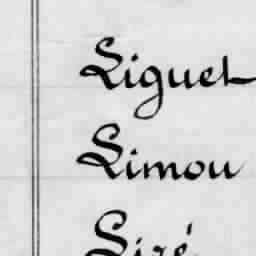 Liguel
Limou
Liré